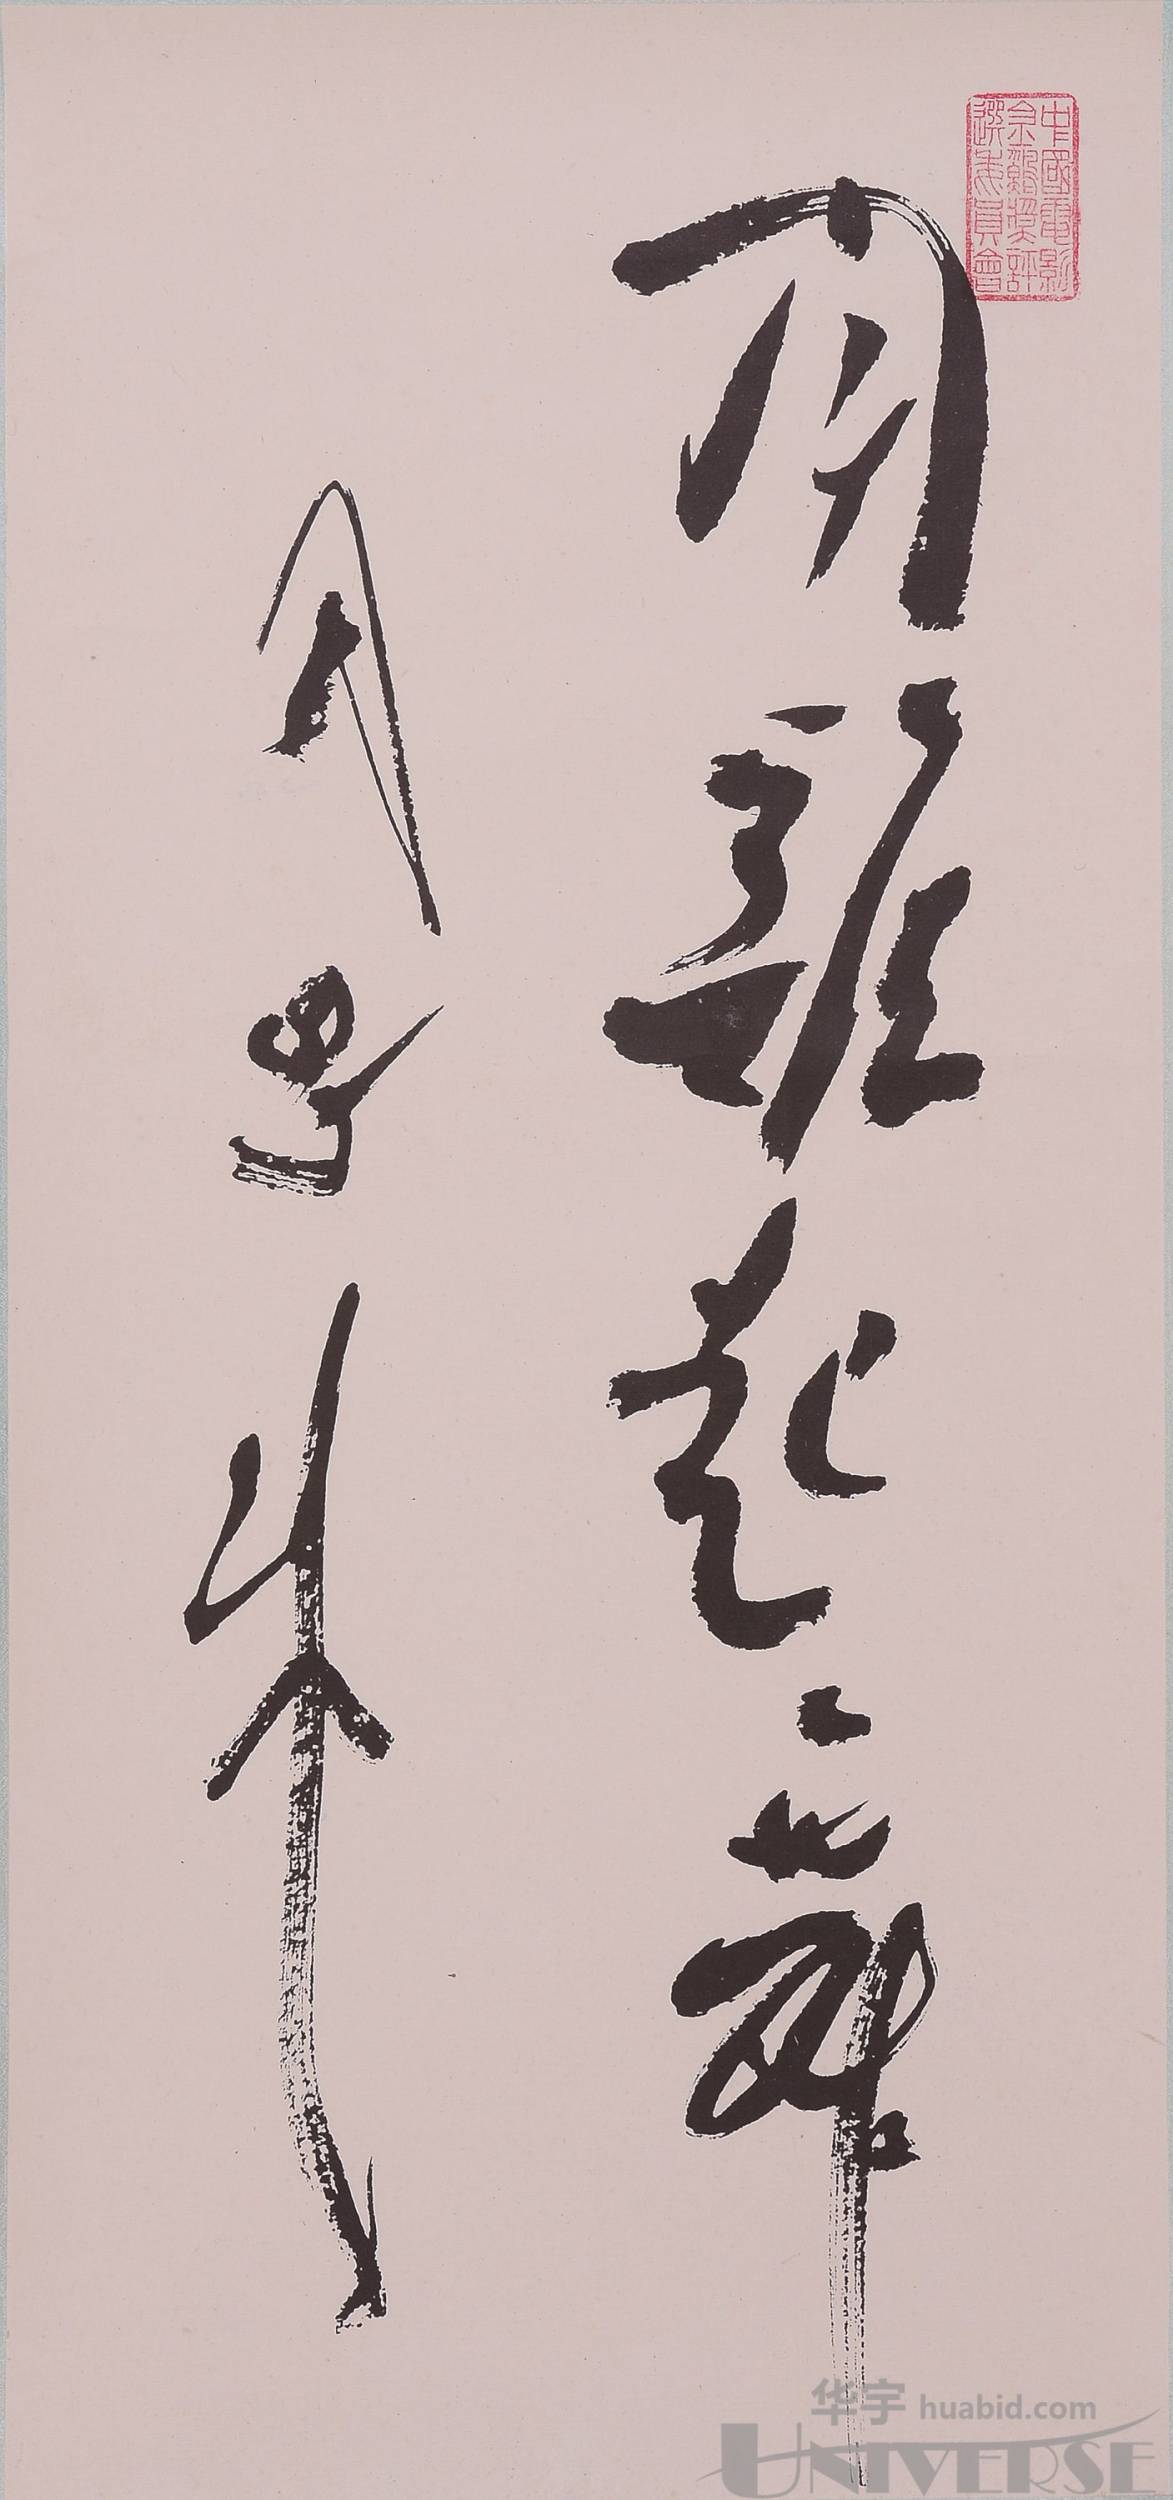 中國電影
金雞獎評
選委員會
闻鸡起舞
华宇 huabid.com
UNIVERSE